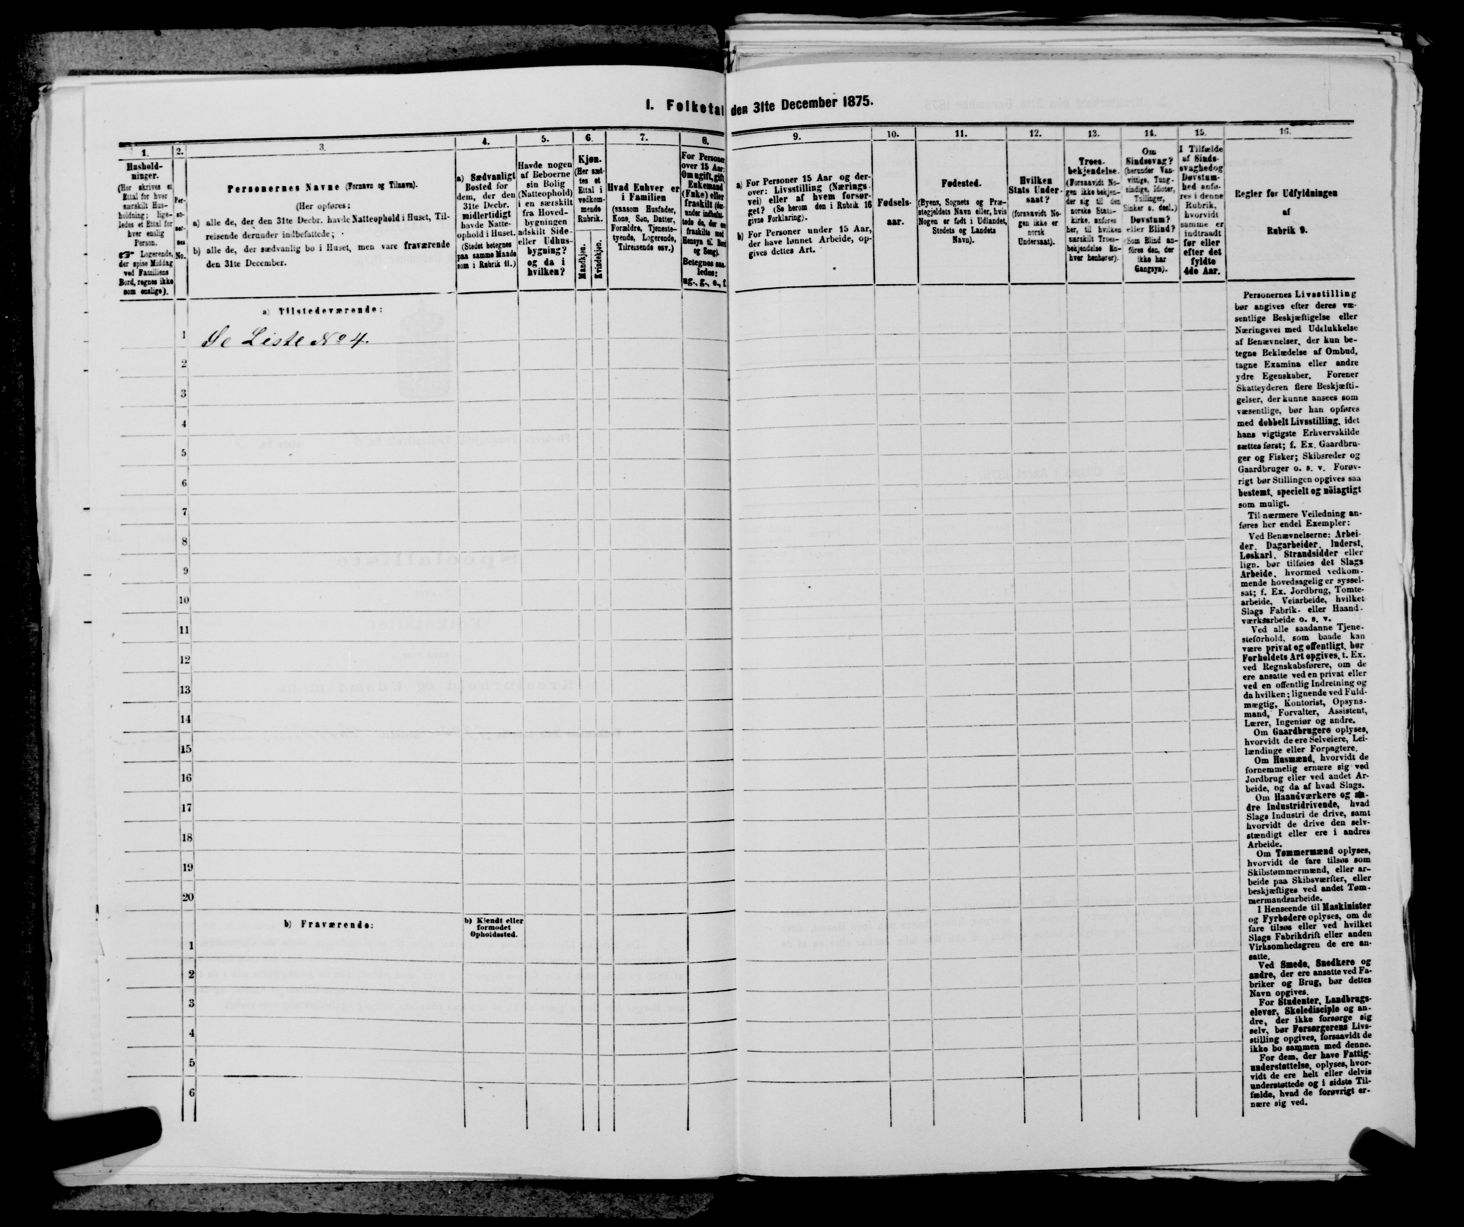 I. Folketal den 31te December 1875.
1.
Hushold-
ninger.
(Her skrives et
Ettal for hver
særskilt Hus-
holdning; lige-
ledes et Ettal for
hver enslig
Person.
☞ Logerende,
der spise Middag
ved Familiens
Bord, regnes ikke
som enslige).
2.
Per-
so-
ner-
nes
No.
3.
Personernes Navne (Fornavn og Tilnavn).
(Her opføres:
a) alle de, der den 31te Decbr. havde Natteophold i Huset, Til-
reisende derunder indbefattede;
b) alle de, der sædvanlig bo i Huset, men vare fraværende
den 31te December.
4.
a) Sædvanligt
Bosted for
dem, der den
31te Decbr.
midlertidigt
havde Natte-
ophold i Huset.
(Stedet betegnes
paa samme Maade
som i Rubrik 11.)
5.
Havde nogen
af Beboerne
sin Bolig
(Natteophold)
i en særskilt
fra Hoved-
bygningen
adskilt Side-
eller Udhus-
bygning?
og da i
hvilken?
6.
Kjøn.
(Her sæt-
tes et
Ettal i
vedkom-
mende
Rubrik.
Mandkjøn.
Kvindekjøn.
7.
Hvad Enhver er
i Familien
(saasom Husfader,
Kone, Søn, Datter,
Forældre, Tjeneste-
tyende, Logerende,
Tilreisende osv.)
8.
For Personer
over 15 Aar:
Om ugift, gift,
Enkemand
(Enke) eller
fraskilt (der-
under indbefat-
tede de, der ere
fraskilte med
Hensyn til Bord
og Seng).
Betegnes saa-
ledes:
ug., g., e., f.
9.
a) For Personer 15 Aar og der-
over: Livsstilling (Nærings-
vei) eller af hvem forsør-
get? (Se herom den i Rubrik 16
givne Forklaring).
b) For Personer under 15 Aar,
der have lønnet Arbeide, op-
gives dettes Art.
10.
Fødsels-
aar.
11.
Fødested.
(Byens, Sognets og Præ-
stegjeldets Navn eller, hvis
Nogen er født i Udlandet,
Stedets og Landets
Navn).
12.
Hvilken
Stats Under-
saat?
(forsaavidt No-
gen ikke er
norsk
Undersaat).
13.
Troes-
bekjendelse.
(Forsaavidt No-
gen ikke bekjen-
der sig til den
norske Stats-
kirke, anføres
her, til hvilken
særskilt Troes-
bekjendelse En-
hver henhører).
14.
Om
Sindssvag?
(herunder Van-
vittige, Tung-
sindige, Idioter,
Tullinger,
Sinker o. desl.)
Døvstum?
eller Blind?
(Som Blind an-
føres den, der
ikke har
Gangsyn).
15.
I Tilfælde
af Sinds-
svaghed og
Døvstum-
hed anfø-
res i denne
Rubrik,
hvorvidt
samme er
indtraadt
før eller
efter det
fyldte
4de Aar.
16.
Regler for Udfyldningen
af
Rubrik 9.
a) Tilstedeværende:
1 Se Liste No 4.
2
3
4
5
6
7
8
9
10
11
12
13
14
15
16
17
18
19
20
b) Fraværende:
b) Kjendt eller
formodet
Opholdssted.
1
2
3
4
5
6
Personernes Livsstilling
bør angives efter deres væ-
sentlige Beskjæftigelse eller
Næringsvei med Udelukkelse
af Benævnelser, der kun be-
tegne Beklædelse af Ombud,
tagne Examina eller andre
ydre Egenskaber. Forener
Skatteyderen flere Beskjæfti-
gelser, der kunne ansees som
væsentlige, bør han opføres
med dobbelt Livsstilling, idet
hans vigtigste Erhvervskilde
sættes først; f. Ex. Gaardbru-
ger og Fisker; Skibsreder og
Gaardbruger o. s. v. Forøv-
rigt bør Stillingen opgives saa
bestemt, specielt og nöiagtigt
som muligt.
Til nærmere Veiledning an-
føres her endel Exempler:
Ved Benævnelserne: Arbei-
der, Dagarbeider, Inderst,
Løskarl, Strandsidder eller
lign. bør tilføies det Slags
Arbeide, hvormed vedkom-
mende hovedsagelig er syssel-
sat; f. Ex. Jordbrug, Tomte-
arbeide, Veiarbeide, hvilket
Slags Fabrik- eller Haand-
værksarbeide o. s. v.
Ved alle saadanne Tjene-
steforhold, som baade kan
være privat og offentligt, bør
Forholdets Art opgives, t. Ex.
ved Regnskabsførere, om de
ere ansatte ved en privat eller
ved en offentlig Indretning og
da hvilken; lignende ved Fuld-
mægtig, Kontorist, Opsyns-
mand, Forvalter, Assistent,
Lærer, Ingeniør og andre.
Om Gaardbrugere oplyses,
hvorvidt de ere Selveiere, Lei-
lændinge eller Forpagtere.
Om Husmænd, hvorvidt de
fornemmelig ernære sig ved
Jordbrug eller ved andet Ar-
beide, og da af hvad Slags.
Om Haandværkere og an-
dre Industridrivende, hvad
Slags Industri de drive, samt
hvorvidt de drive den selv-
stændigt eller ere i andres
Arbeide.
Om Tømmermænd oplyses,
hvorvidt de fare tilsøs som
Skibstømmermænd, eller ar-
beide paa Skibsværfter, eller
beskjæftiges ved andet Tøm-
mermandsarbeide.
I Henseende til Maskinister
og Fyrbødere oplyses, om de
fare tilsøs eller ved hvilket
Slags Fabrikdrift eller anden
Virksomhedsgren de ere an-
satte.
Ved Smede, Snedkere og
andre, der ere ansatte ved Fa-
briker og Brug, bør dettes
Navn opgives.
For Studenter, Landbrugs-
elever, Skoledisciple og an-
dre, der ikke forsørge sig
selv, bør Forsørgerens Livs-
stilling opgives, forsaavidt de
ikke bo sammen med denne.
For dem, der have Fattig-
understøttelse, oplyses, hvor-
vidt de ere helt eller delvis
understøttede og i sidste Til-
fælde, hvad de forøvrigt er-
nære sig ved.